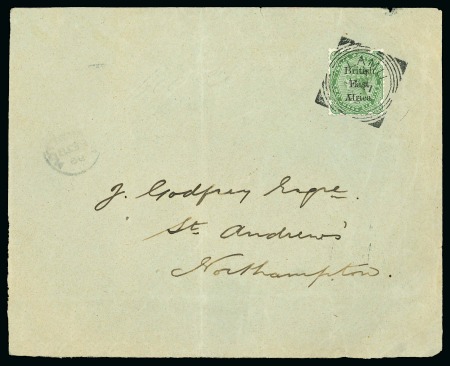 British
East
Africa
J. Godfrey Esqre.
St. Andrew's
Northampton.